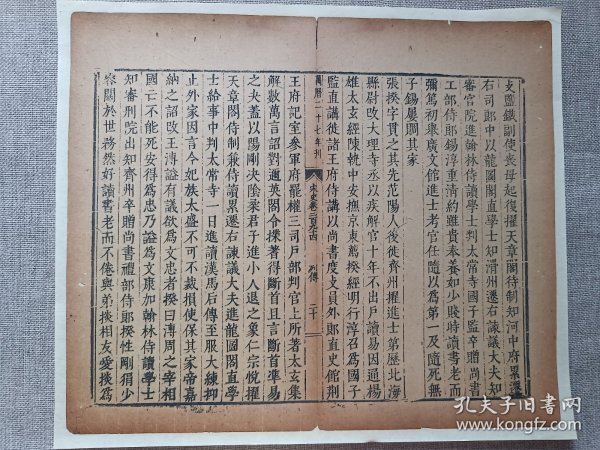 支鹽鐵副使喪母起復擢天章閣待制知河中府累遷
右司郎中以龍圖閣直學士知滑州遷右諫議大夫知
審官院進翰林侍讀學士判太常寺國子監卒贈尚書
工部侍郎錫淳重清約雖貴奉養如少賤時讀書老而
彌篤初舉廣文館進士考官任隨以爲第一及隨死無
子錫屢賙其家
張揆字貫之其先范陽人後徙齊州擢進士第歷北海
縣尉改大理寺丞以疾解官十年不出戶讀易因通揚
雄太玄經陳執中安撫京東薦揆經明行淳召爲國子
監直講徙諸王府侍講以尚書度支員外郎直史館荊
萬曆二十七年刊
宋史卷二百九十四
列傳
二十
王府記室參軍府罷權三司戶部判官上所著太玄集
解數萬言詔對邇英閣令揲蓍得斷首且言斷首準易
之夬蓋以陽剛決陰柔君子進小人退之象仁宗悅擢
天章閣待制兼侍讀累遷右諫議大夫進龍圖閣直學
士給事中判太常寺一日進讀漢馬后傳至服大練抑
止外家因言今妃族太盛不可不裁損使保其家帝嘉
納之詔改王溥謚有議欲爲文忠者揆曰溥周之宰相
國亡不能死安得爲忠乃謚爲文康加翰林侍讀學士
知審刑院出知齊州卒贈尚書禮部侍郎揆性剛狷少
容闊於世務然好讀書老而不倦與弟掞相友愛掞爲
孔夫子旧书网
www.kongfz.com